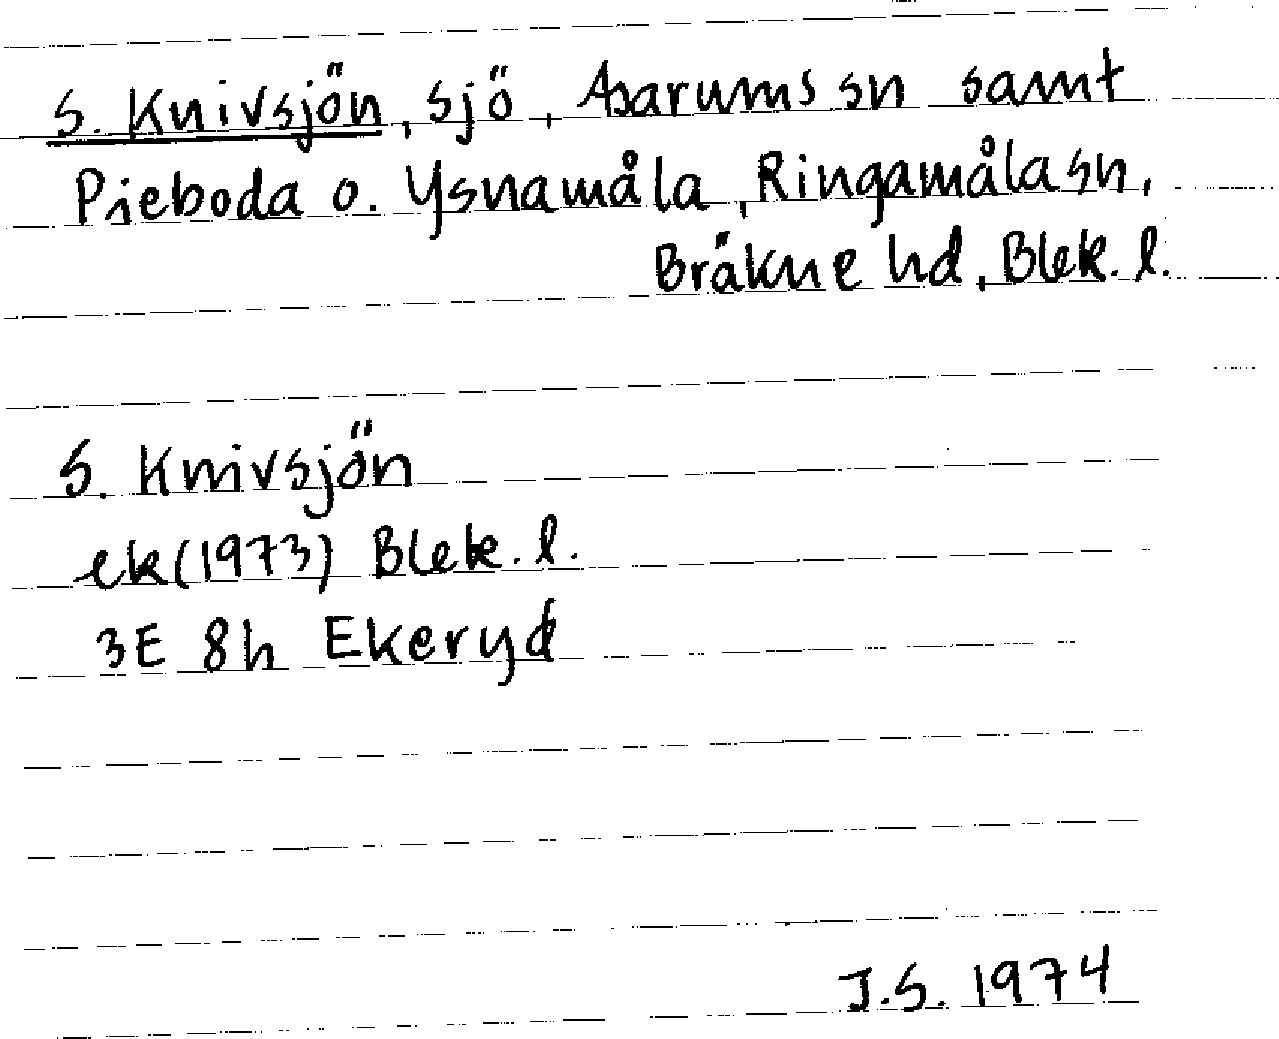 S. Knivsjön, sjö, Asarums sn samt
Pieboda o. Ysnamåla, Ringamåla sn,
Bräkne hd, Blek. l.
S. Knivsjön
ek (1973) Blek. l.
3E 8h Ekeryd
J.S. 1974